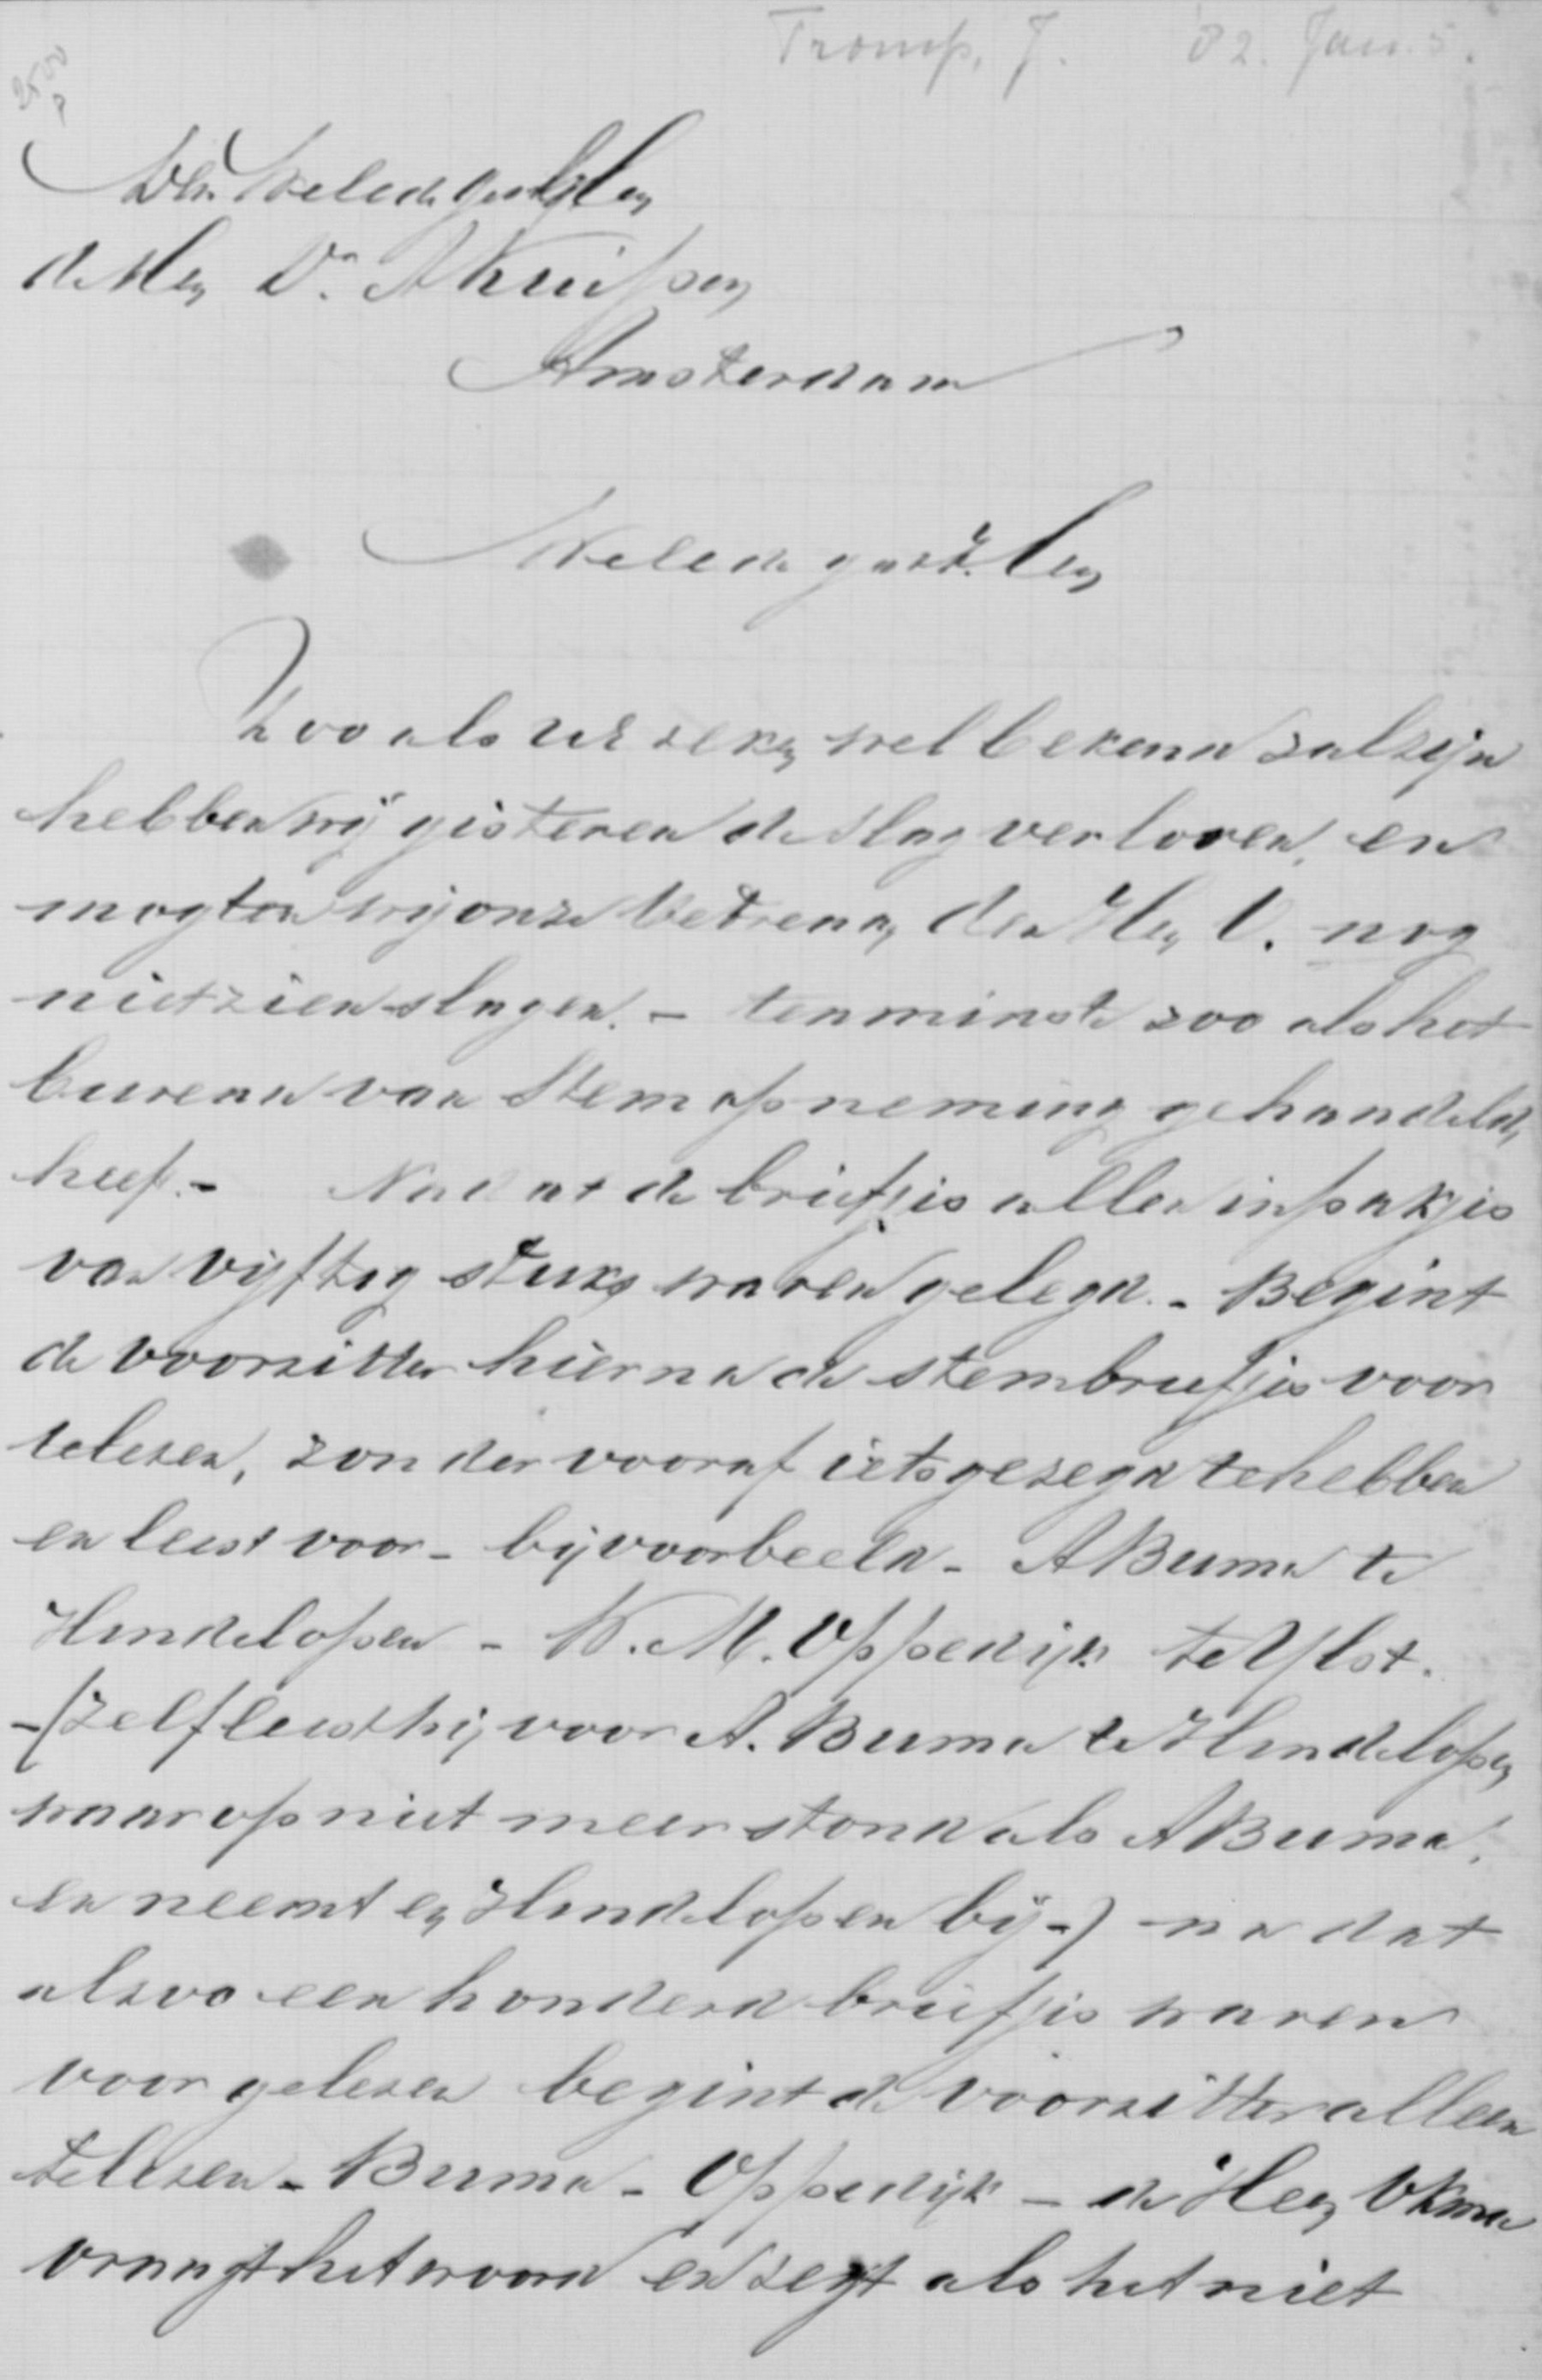 Tromp, J. '82. Jan. 5.
Den Weled. gestr. Heer
de Heer Dr. A Kuijper
Amsterdam
Weled. gestr. Heer
Zoo als UE zeker wel bekend zal zijn
hebben wij gisteren de slag verloren, en
mogten wij onze Cedrenaar, den Heer O. nog
niet zien slagen. - tenminste zoo als het
bureau van Stemopneming gehandeld
heeft. - Nadat de briefjes allen in pakjes
van vijftig stuks waren gelegd. - Begint
de voorzitter hierna de stembriefjes voor
te lezen, zonder vooraf iets gezegd te hebben
en leest voor - bijvoorbeeld - A Buma te
Hindelopen - W. M. Oppedijk te Ylst.
- (zelf leest hij voor A. Buma te Hindelopen
waarop niet meer stond als A Buma,
en neemt er Hindelopen bij -) na dat
alzoo een honderd briefjes waren
voorgelezen begint de voorzitter alleen
te lezen - Buma - Oppedijk - de Heer Okma
vraagt het woord en zegt als het niet